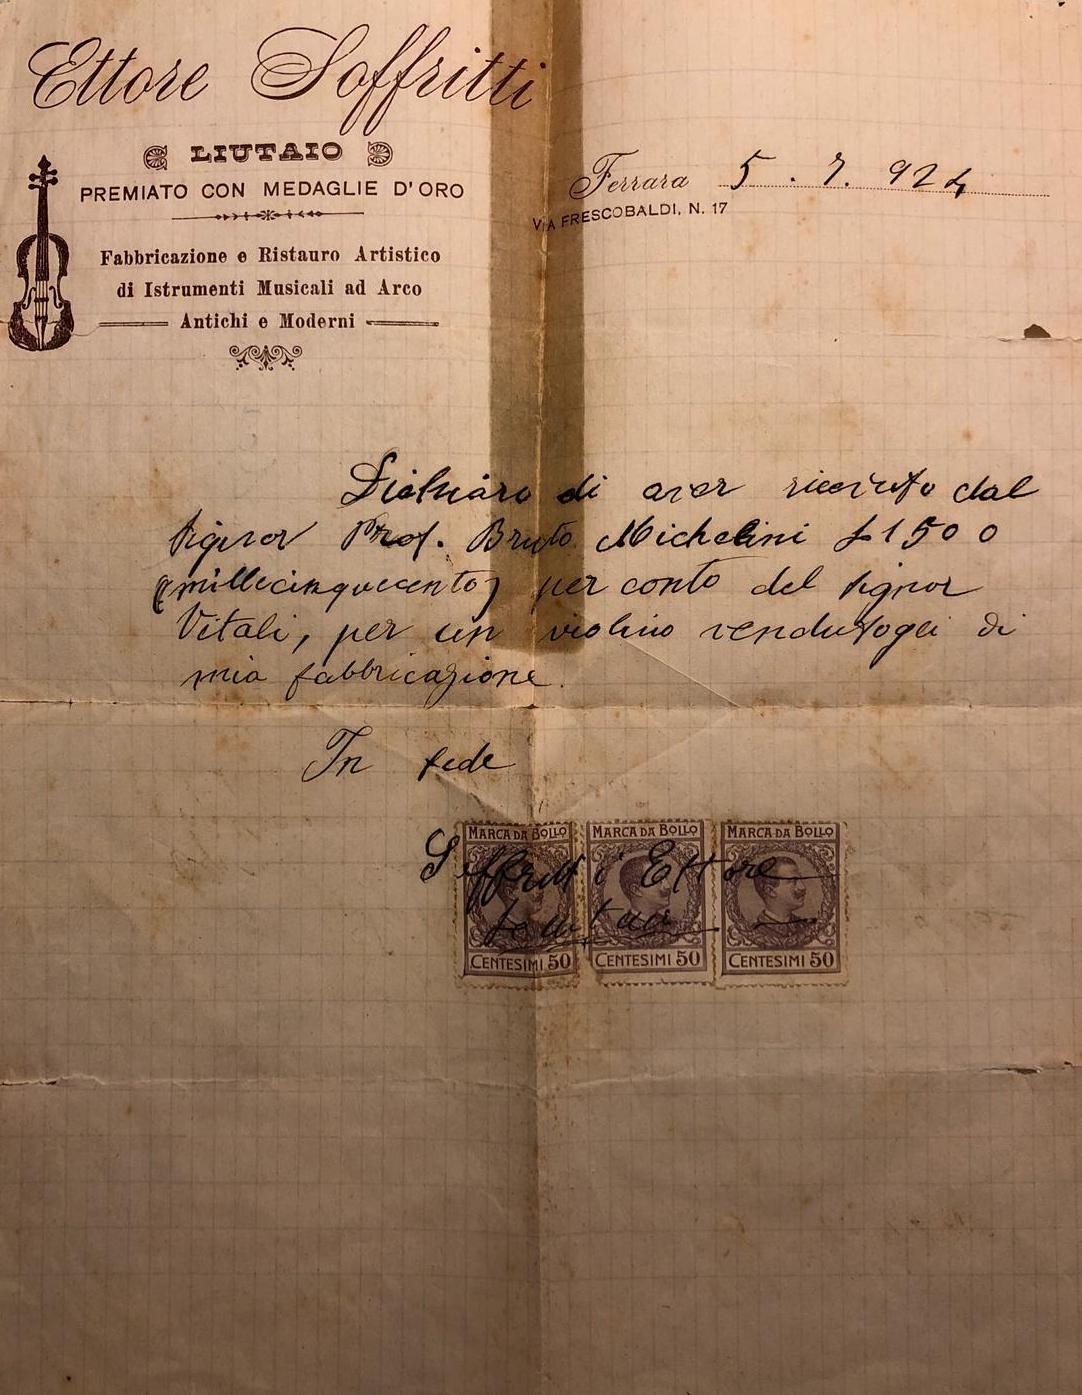 Ettore Soffritti
LIUTAIO
PREMIATO CON MEDAGLIE D'ORO
Fabbricazione e Ristauro Artistico
di Istrumenti Musicali ad Arco
Antichi e Moderni
Ferrara 5. 7. 924
VIA FRESCOBALDI, N. 17
Dichiaro di aver ricevuto dal
signor Prof. Bruto Michelini £ 1500
(millecinquecento) per conto del signor
Vitali, per un violino vendutogli di
mia fabbricazione.
In fede
MARCA DA BOLLO MARCA DA BOLLO MARCA DA BOLLO
Soffritti Ettore
CENTESIMI 50 CENTESIMI 50 CENTESIMI 50